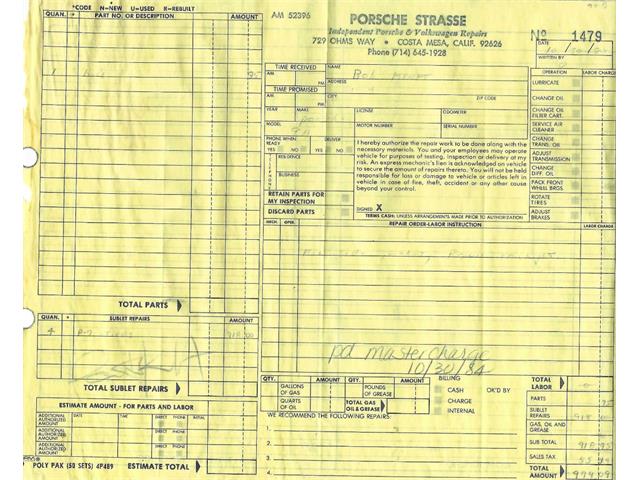 *CODE N—NEW U—USED R—REBUILT
QUAN. * PART NO. OR DESCRIPTION AMOUNT
AM 52396
PORSCHE STRASSE
Independent Porsche & Volkswagen Repairs
729 OHMS WAY • COSTA MESA, CALIF. 92626
Phone (714) 645-1928
No 1479
DATE
WRITTEN BY
TIME RECEIVED
A.M.
P.M.
TIME PROMISED
A.M.
P.M.
NAME
Bob
ADDRESS
CITY ZIP CODE
YEAR MAKE
LICENSE ODOMETER
MODEL
911
MOTOR NUMBER SERIAL NUMBER
PHONE WHEN READY DELIVER
YES NO YES NO
TELEPHONE
RESIDENCE
BUSINESS
RETAIN PARTS FOR MY INSPECTION
DISCARD PARTS
I hereby authorize the repair work to be done along with the
necessary materials. You and your employees may operate
vehicle for purposes of testing, inspection or delivery at my
risk. An express mechanic's lien is acknowledged on vehicle
to secure the amount of repairs thereto. You will not be held
responsible for loss or damage to vehicle or articles left in
vehicle in case of fire, theft, accident or any other cause
beyond your control.
SIGNED X
TERMS CASH: UNLESS ARRANGEMENTS MADE PRIOR TO AUTHORIZATION
OPERATION LABOR CHARGE
LUBRICATE
CHANGE OIL
CHANGE OIL FILTER CART.
SERVICE AIR CLEANER
CHANGE TRANS. OIL
ADJUST TRANSMISSION
CHANGE DIFF. OIL
PACK FRONT WHEEL BRGS.
ROTATE TIRES
ADJUST BRAKES
MECH. OPER. REPAIR ORDER-LABOR INSTRUCTION LABOR CHARGE
TOTAL PARTS
QUAN. * SUBLET REPAIRS AMOUNT
4
TOTAL SUBLET REPAIRS
pd mastercharge
10/30/84
ESTIMATE AMOUNT - FOR PARTS AND LABOR
ADDITIONAL AUTHORIZED AMOUNT DATE TIME DIRECT PHONE INITIAL
ADDITIONAL AUTHORIZED AMOUNT DIRECT PHONE
ADDITIONAL AUTHORIZED AMOUNT DIRECT PHONE
POLY PAK (50 SETS) 4P489 ESTIMATE TOTAL
QTY. AMOUNT QTY. AMOUNT
GALLONS OF GAS
POUNDS OF GREASE
QUARTS OF OIL
TOTAL GAS OIL & GREASE
BILLING
CASH OK'D BY
CHARGE
INTERNAL
WE RECOMMEND THE FOLLOWING REPAIRS:
1.
2.
3.
4.
TOTAL LABOR
PARTS
SUBLET REPAIRS
GAS, OIL AND GREASE
SUB TOTAL 918 95
SALES TAX
TOTAL AMOUNT